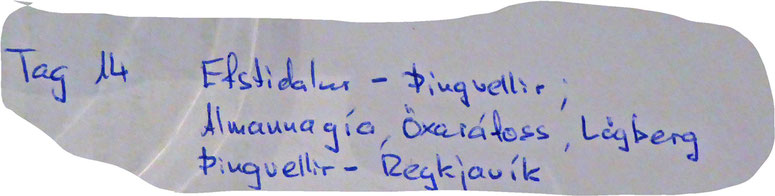 Tag 14 Efstidalur - Þingvellir;
Almannagía, Öxaráfoss, Lågberg
Þingvellir - Regkjavík